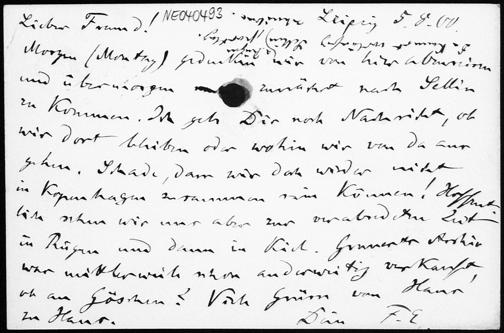 Lieber Freund! NE040493 Leipzig 5.8.00.
Morgen (Montag) gedenken wir von hier abzureisen
und übermorgen zunächst nach Sellin
zu kommen. Ich geb Dir noch Nachricht, ob
wir dort bleiben oder wohin wir von da aus
gehen. Schade, dass wir doch wieder nicht
in Kopenhagen zusammen sein können! Hoffent-
lich sehen wir uns aber zur verabredeten Zeit
in Rügen und dann in Kiel.
war mittlerweile schon anderweitig verkauft,
ob an Göschen? Viele Grüsse von Haus
zu Haus. Dein F. E.